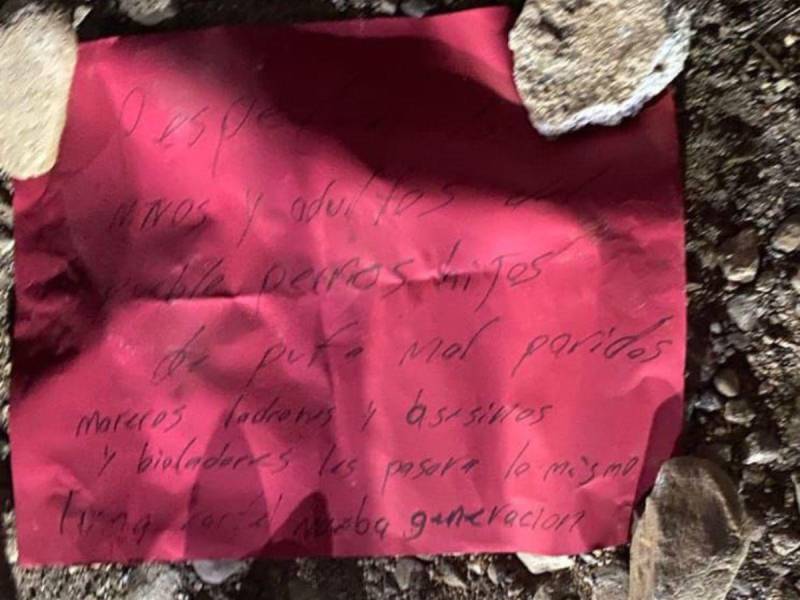 niños y adultos
perros hijos
de puta mal paridos
mareros ladrones y asesinos
y bioladores les pasara lo mismo
cartel nueba generacion